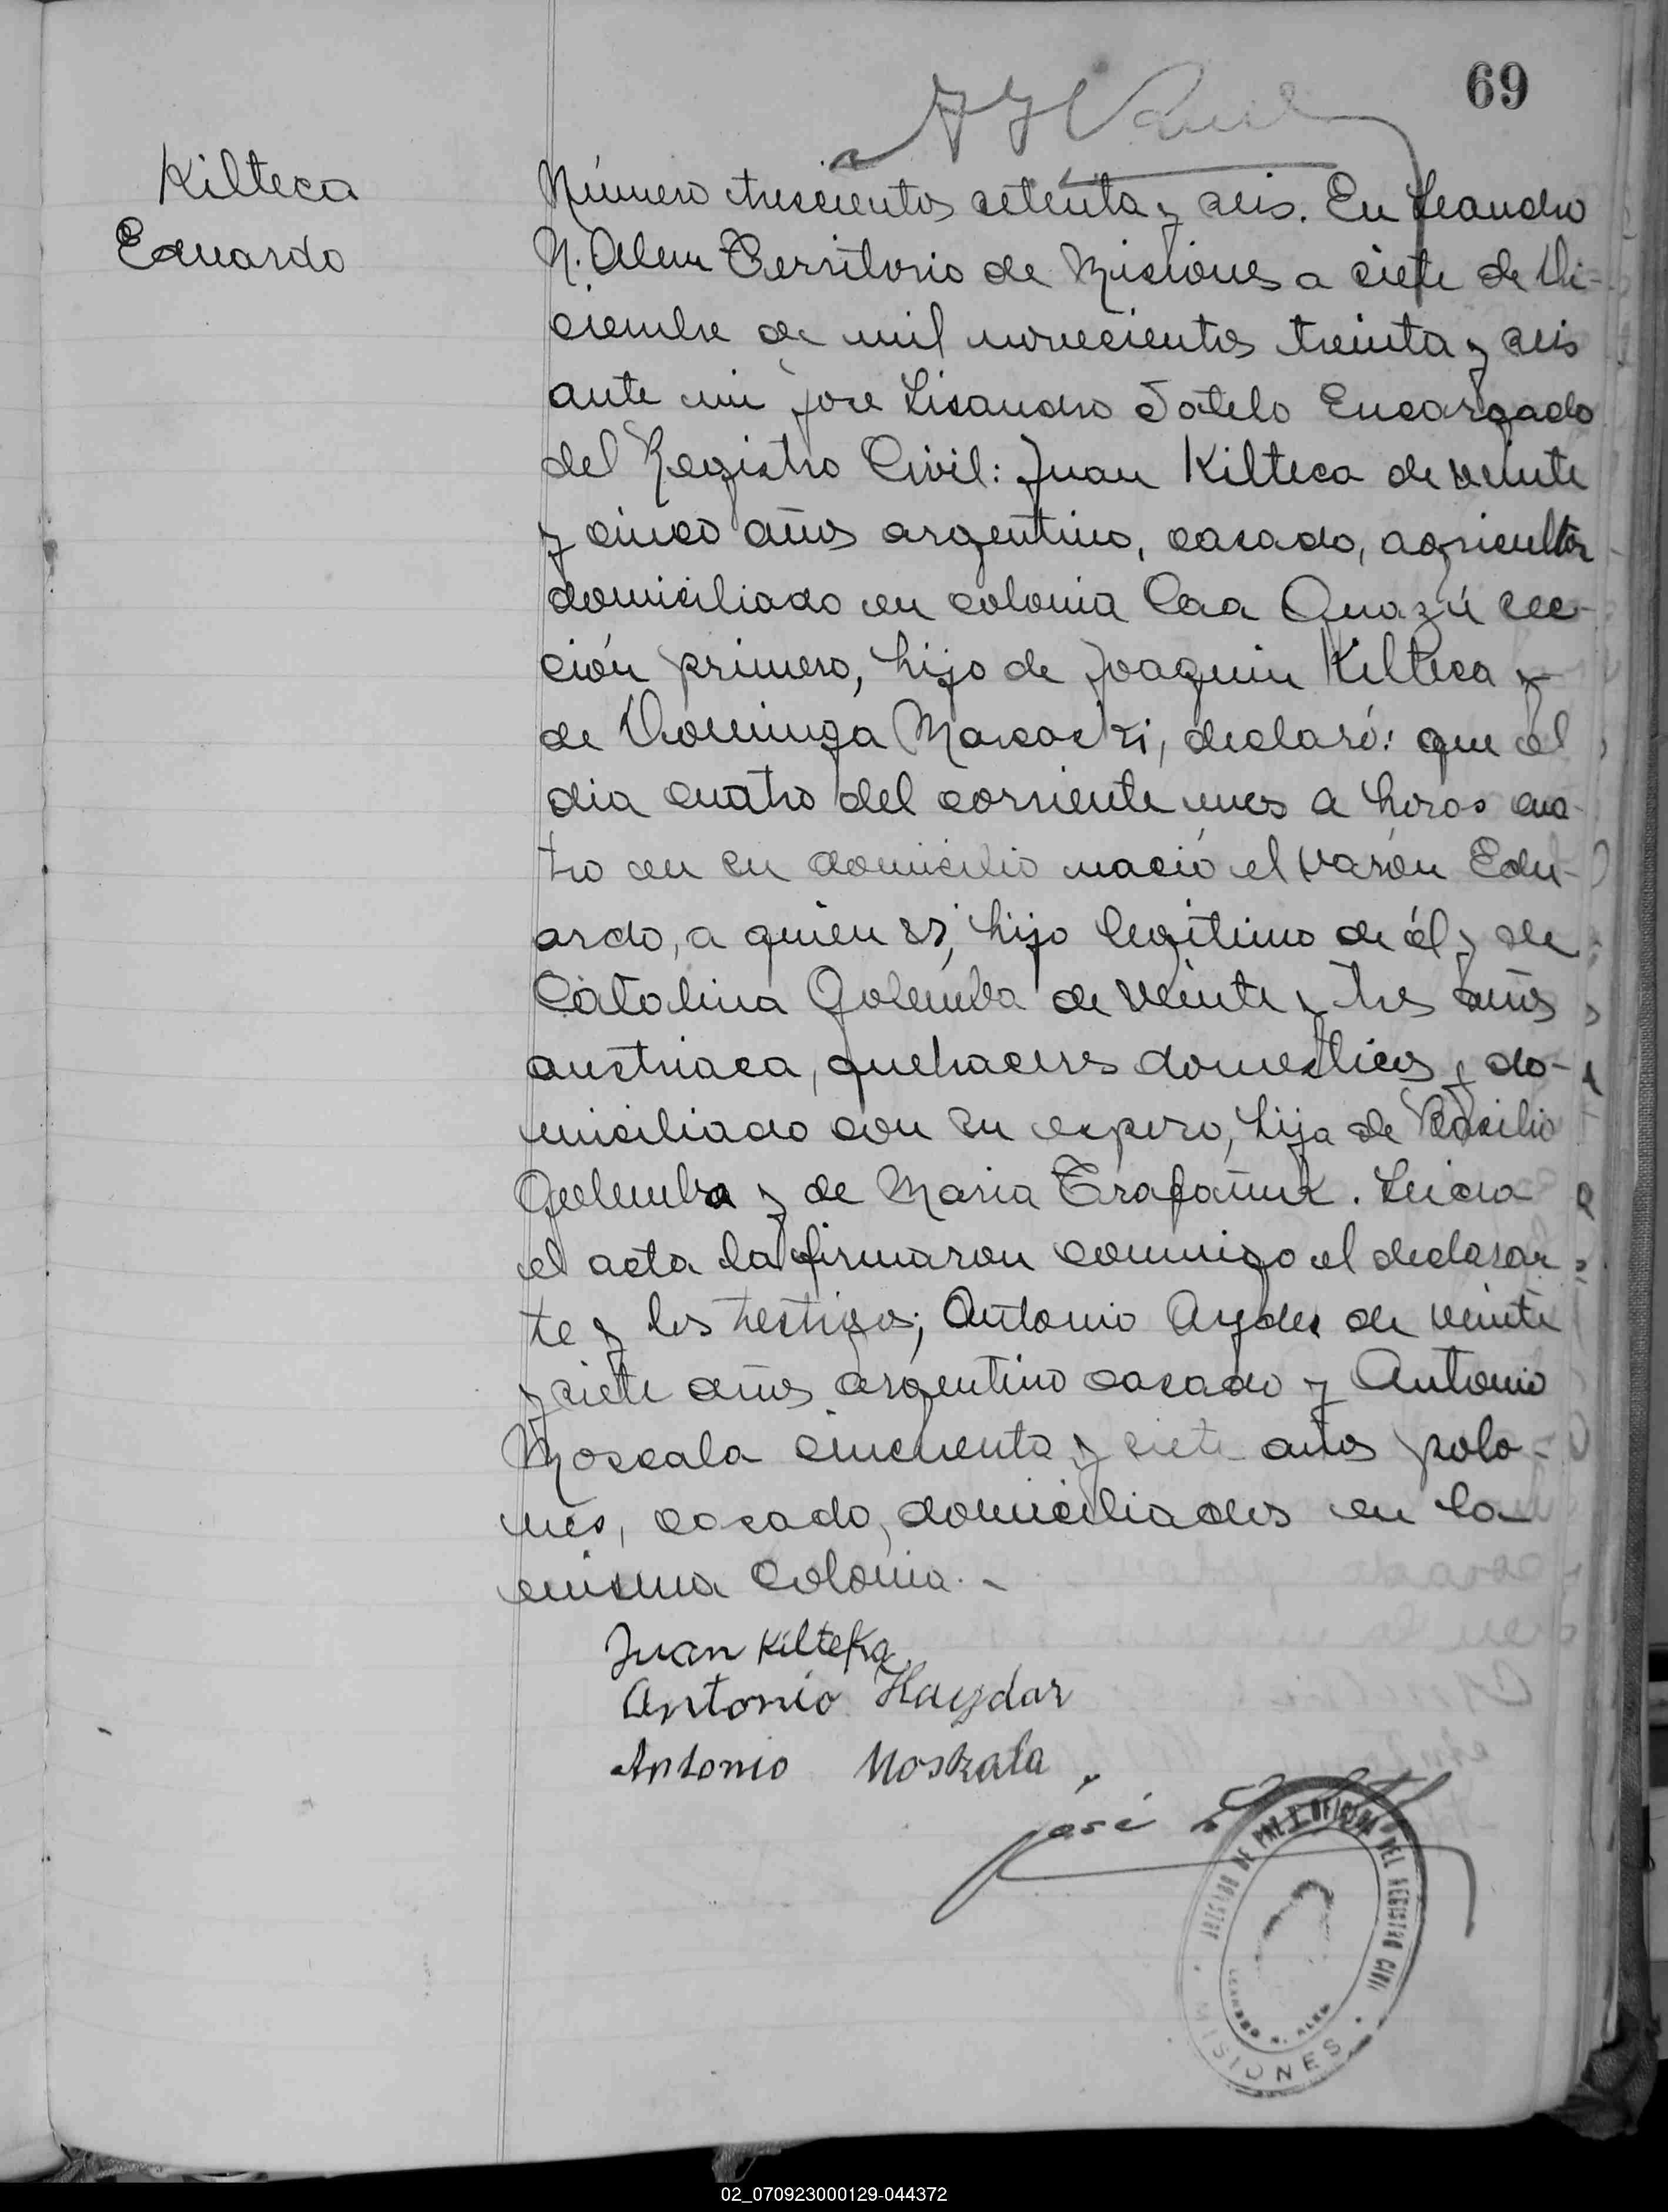 69
Kilteca
Eduardo
Número trescientos setenta y seis. En Leandro
N. Alem Territorio de Misiones a siete de Di-
ciembre de mil novecientos treinta y seis
ante mi José Lisandro Sotelo Encargado
del Registro Civil: Juan Kilteca de veinte
y cinco años argentino, casado, agricultor
domiciliado en colonia Caa Guazú sec-
ción primero, hijo de Joaquin Kilteca y
de Dominga Marsoski, declaró: que el
dia cuatro del corriente mes a horas cua-
tro en su domicilio nació el varón Edu-
ardo, a quien vi, hijo legítimo de él y de
Catalina Golemba de veinte y tres años
austriaca, quehaceres domesticos y do-
miciliado con su esposo, hija de Basilio
Golemba y de Maria Trafañuk. Leida
el acta la firmaron conmigo el declaran
te y los testigos; Antonio Ayder de veinte
y siete años argentino casado y Antonio
Moscala cincuenta y siete años polo-
nés, casado, domiciliados en la
misma colonia.-
Juan Kilteka
Antonio Haydar
Antonio Moskala
José L. Sotelo
JUZGADO DE PAZ Y OFICINA DEL REGISTRO CIVIL
LEANDRO N. ALEM
MISIONES
02_070923000129-044372